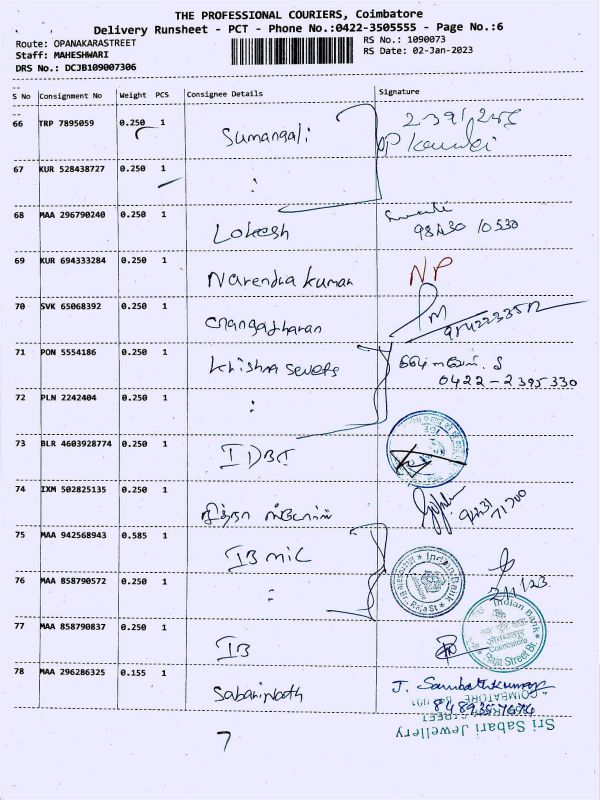 THE PROFESSIONAL COURIERS, Coimbatore
Delivery Runsheet - PCT - Phone No.:0422-3505555 - Page No.:6
Route: OPANAKARASTREET
RS No.: 1090073
Staff: MAHESHWARI
RS Date: 02-Jan-2023
DRS No.: DCJB109007306
S No Consignment No Weight PCS Consignee Details Signature
66 TRP 7895059 0.250 1 Sumangali
67 KUR 528438727 0.250 1 :
68 MAA 296790240 0.250 1 Lokesh
98430 10530
69 KUR 694333284 0.250 1 Narendra kumar NP
70 SVK 65068392 0.250 1
71 PON 5554186 0.250 1 Krishna
0422-2395330
72 PLN 2242404 0.250 1 :
73 BLR 4603928774 0.250 1 IDBI
74 IXM 502825135 0.250 1
75 MAA 942568943 0.585 1
Indian Bank
76 MAA 858790572 0.250 1 :
2/1/23
77 MAA 858790837 0.250 1 IB
Indian Bank
Coimbatore
Raja Street Br.
78 MAA 296286325 0.155 1 Sabarinath
J. Sambathkumar
Sri Sabari Jewellery
7